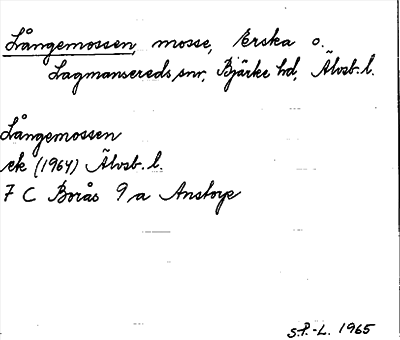 Långemossen, mosse, Erska o.
Lagmansereds snr, Bjärke hd, Älvsb. l.
Långemossen
ek (1964) Älvsb. l.
7 C Borås 9 a Anstorp
S.P.-L. 1965